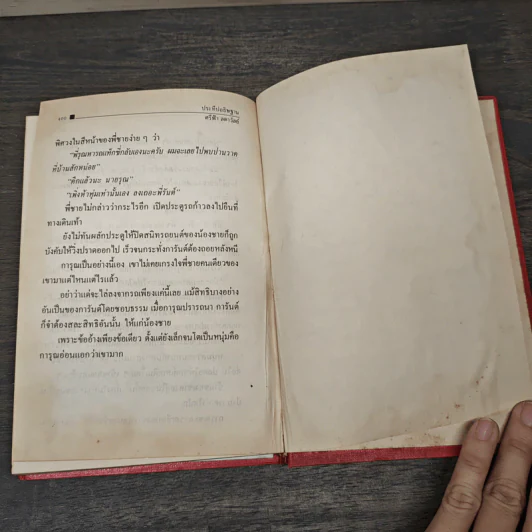 ประทีปอธิษฐาน
ศรีฟ้า ลดาวัลย์
พิศวงในสีหน้าของพี่ชายง่าย ๆ ว่า
“พี่รุณหารถแท็กซี่กลับเองนะครับ ผมจะเลยไปพบปานวาด
ที่บ้านสักหน่อย”
“ดึกแล้วนะ นายรุณ”
“เพิ่งห้าทุ่มเท่านั้นเอง ลงเถอะพี่รันต์”
พี่ชายไม่กล่าวว่ากระไรอีก เปิดประตูรถก้าวลงไปยืนที่
ทางเดินเท้า
ยังไม่ทันผลักประตูให้ปิดสนิทรถยนต์ของน้องชายก็ถูก
บังคับให้วิ่งปราดออกไป เร็วจนกระทั่งการันต์ต้องถอยหลังหนี
การุณเป็นอย่างนี้เอง เขาไม่เคยเกรงใจพี่ชายคนเดียวของ
เขามาแต่ไหนแต่ไรแล้ว
อย่าว่าแต่จะไล่ลงจากรถเพียงแค่นี้เลย แม้สิทธิบางอย่าง
อันเป็นของการันต์โดยชอบธรรม เมื่อการุณปรารถนา การันต์
ก็จำต้องสละสิทธิอันนั้น ให้แก่น้องชาย
เพราะข้ออ้างเพียงข้อเดียว ตั้งแต่ยังเล็กจนโตเป็นหนุ่มคือ
การุณอ่อนแอกว่าเขามาก